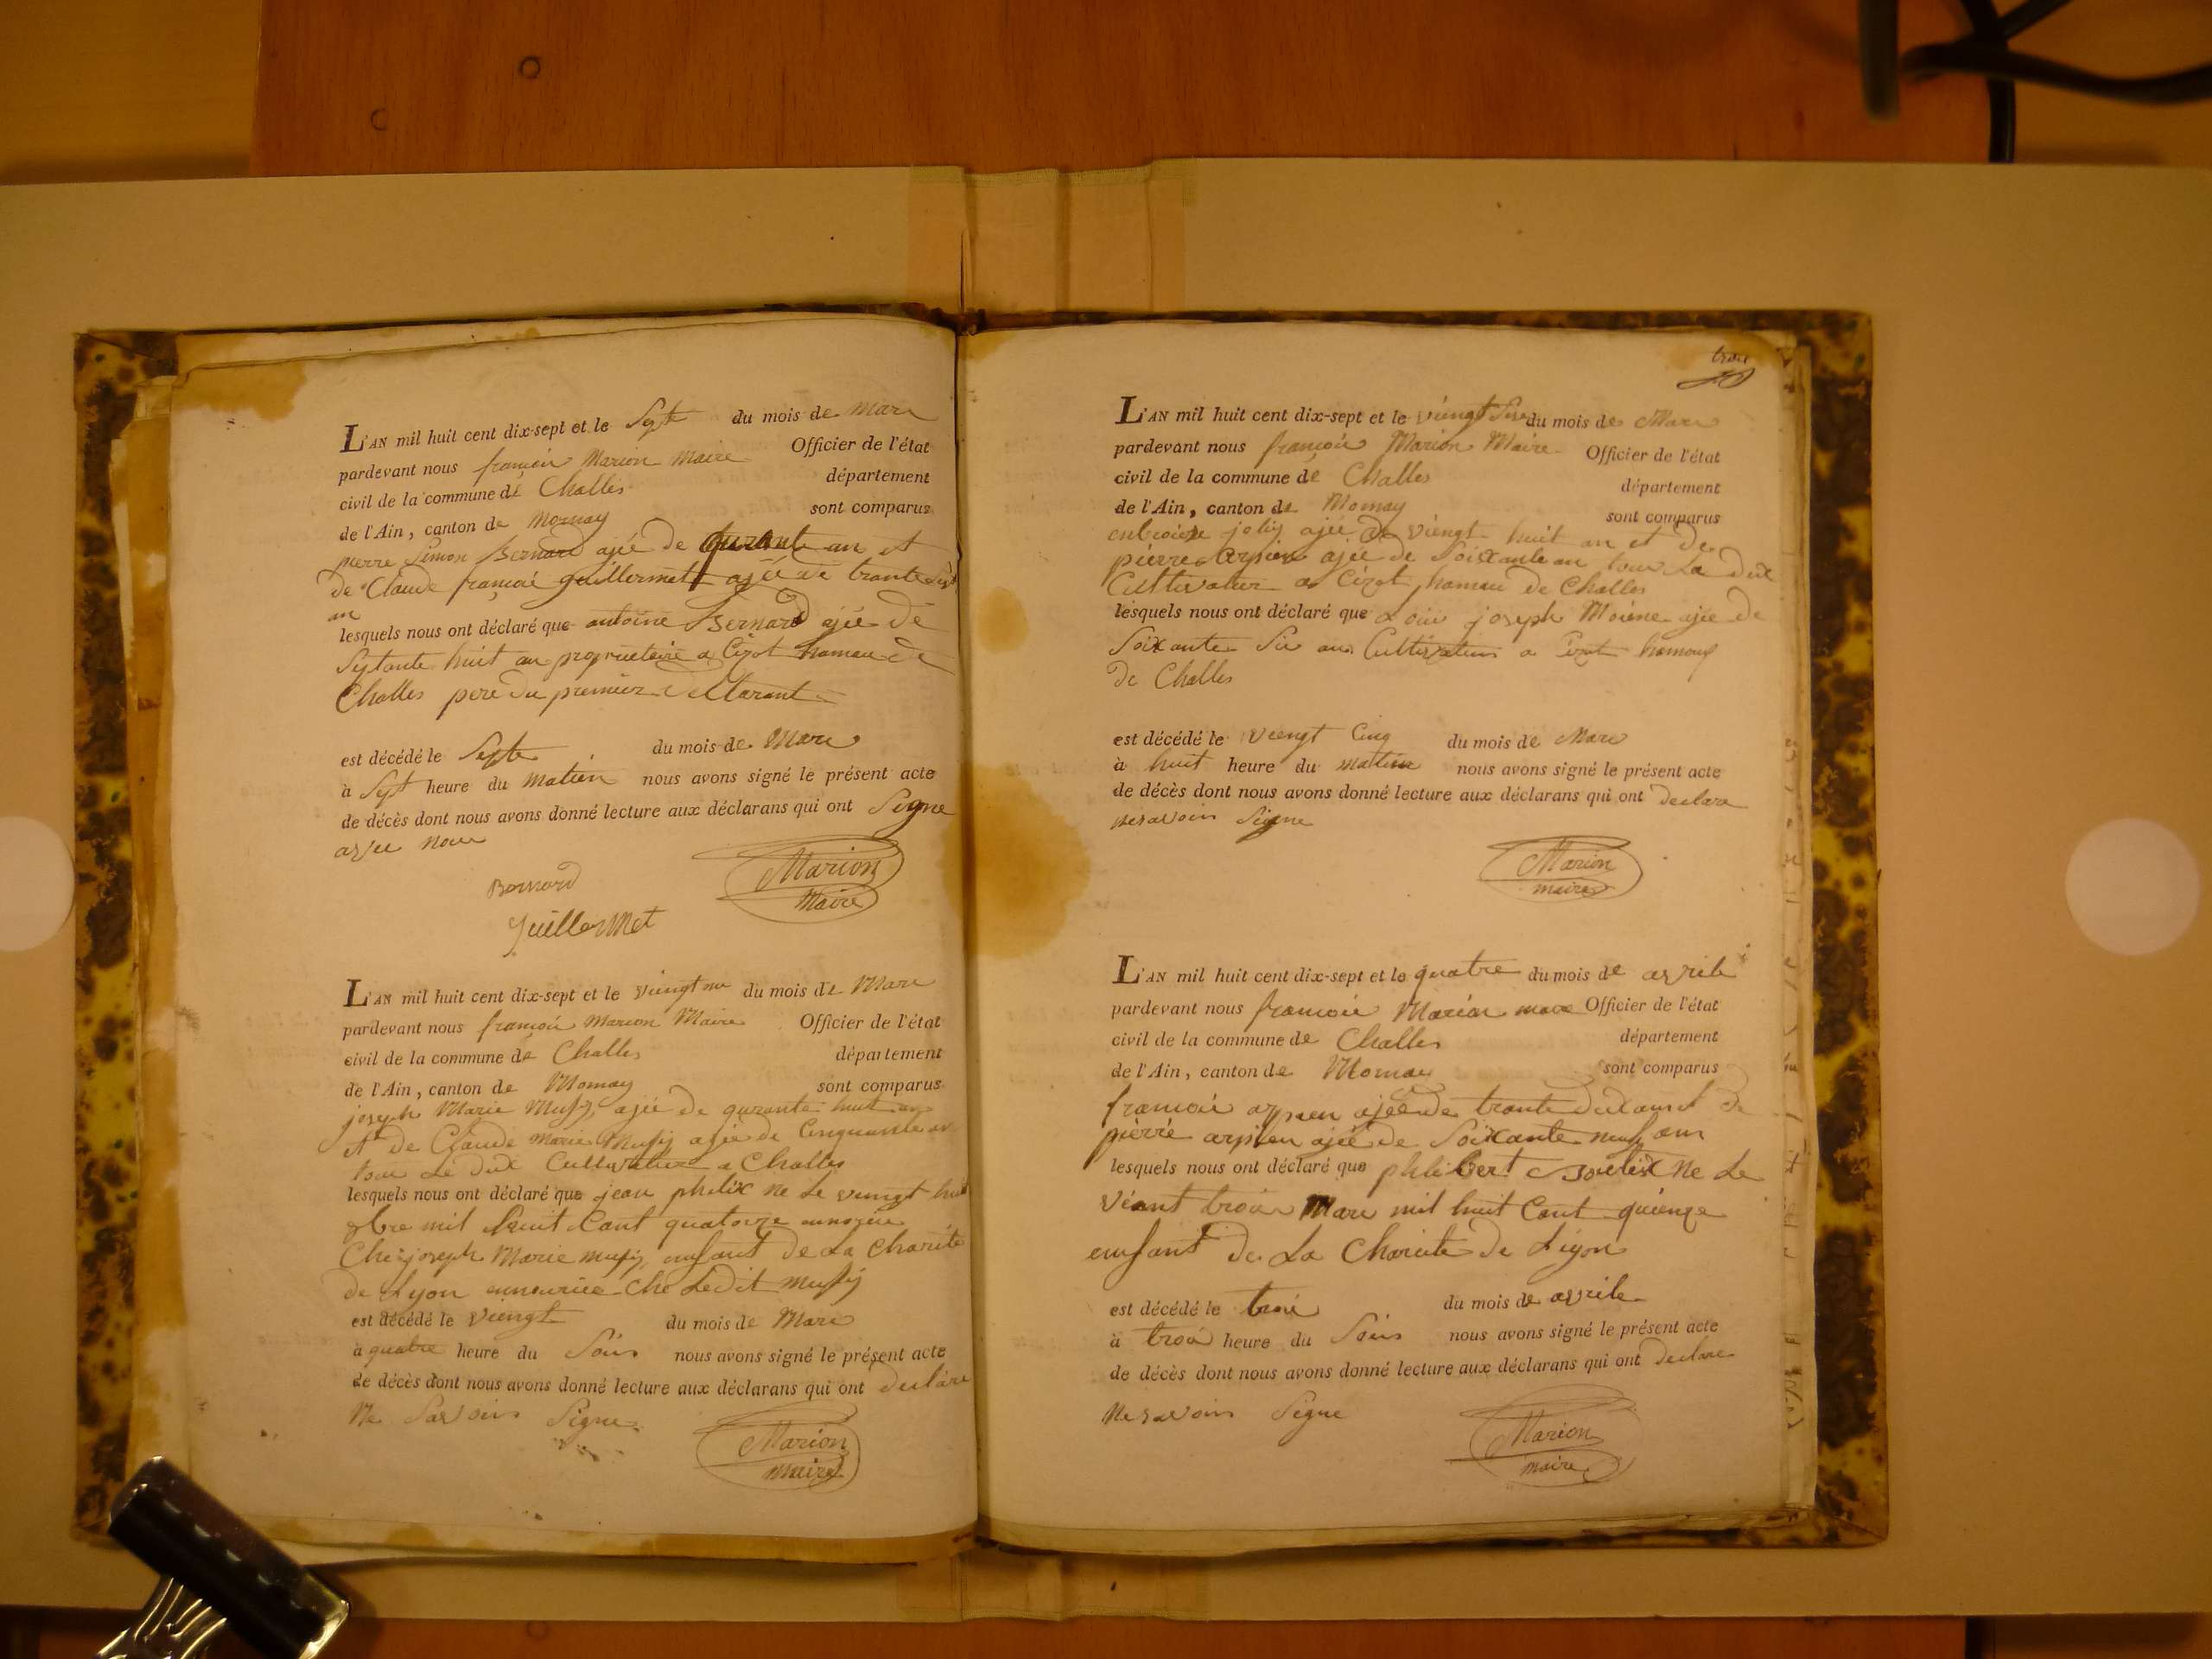 L'AN mil huit cent dix-sept et le Septe du mois de Mars
pardevant nous françois Marion Maire Officier de l'état
civil de la commune de Challes département
de l'Ain, canton de Mornay sont comparus
pierre Simon Bernard ajée de qurante an et
de Claude françoi guillermet ajée de trante sept
an
lesquels nous ont déclaré que antoine Bernard ajée de
Septante huit an proprietaire a Cizot hameau de
Challes pere du premier declarant
est décédé le Septe du mois de Mars
à Sept heure du matien nous avons signé le présent acte
de décès dont nous avons donné lecture aux déclarans qui ont Signe
avec nous
Bernard
Guillermet
Marion
Maire
L'AN mil huit cent dix-sept et le viengt une du mois de Mars
pardevant nous françoi Marion Maire Officier de l'état
civil de la commune de Challes département
de l'Ain, canton de Mornay sont comparus
joseph Marie Mussy ajée de quranta huit an
et de Claude Marie Mussij ajée de Cinquante an
tous Le deux Cultivateur a Challes
lesquels nous ont déclaré que jean phelix ne Le viengt huit
obre mil huit Cant quatorze
Ches joseph Marie mussij enfant de La Charité
de Lyon ennourice Ché Ledit mussij
est décédé le viengt du mois de Mars
à quatre heure du Soir nous avons signé le présent acte
de décès dont nous avons donné lecture aux déclarans qui ont declare
Ne Savoir Signe
Marion
maire
trois
L'AN mil huit cent dix-sept et le viengt Sixe du mois de Mars
pardevant nous françois Marion Maire Officier de l'état
civil de la commune de Challes département
de l'Ain, canton de Mornay sont comparus
enbroise jolij ajée de viengt huit an et de
pierre Arpien ajée de Soixante an tous La deux
Cultivateur a Cizot hameau de Challes
lesquels nous ont déclaré que Loui joseph Moine ajée de
Soixante Six ans Cultivateur a Cizot hamaux
de Challes
est décédé le viengt Cinq du mois de Mars
à huit heure du matien nous avons signé le présent acte
de décès dont nous avons donné lecture aux déclarans qui ont declare
nesavoir Signe
Marion
maire
L'AN mil huit cent dix-sept et le quatre du mois de avrile
pardevant nous françois Marion maire Officier de l'état
civil de la commune de Challes département
de l'Ain, canton de Mornay sont comparus
françoi arpien ajée de trante deux an et de
pierre arpien ajée de Soixante neuf an
lesquels nous ont déclaré que philibert ne Le
véant troix Mars mil huit Cant quienze
enfant de La Charite de Liyon
est décédé le troi du mois de avrile
à troix heure du Soir nous avons signé le présent acte
de décès dont nous avons donné lecture aux déclarans qui ont declare
Nesavoir Signe
Marion
maire